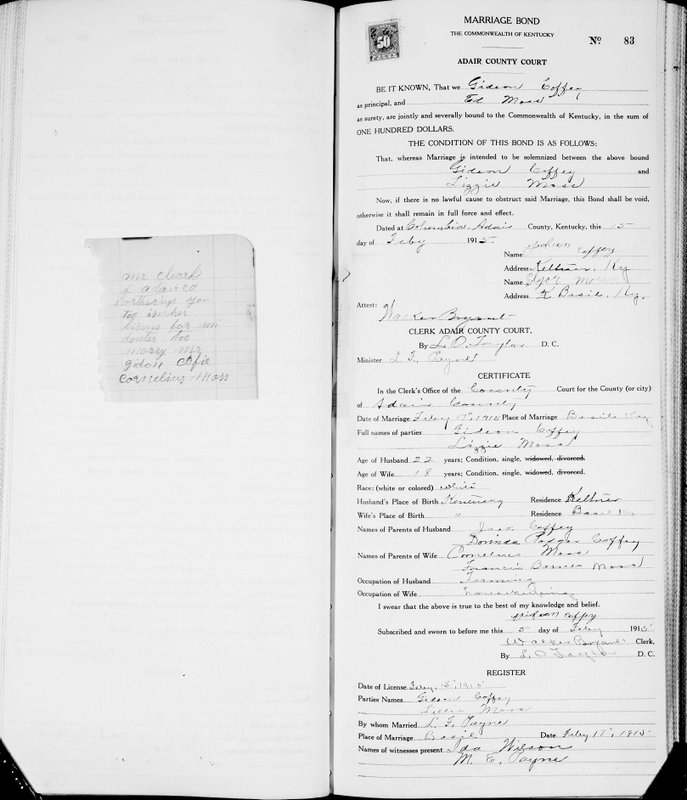 mr cleark
of adair co
I ortherige you
too isusher
lisens for mi
douter too
mary mr
gidon Cofie
Cornelius Moss
MARRIAGE BOND
THE COMMONWEALTH OF KENTUCKY
50
Nº 83
ADAIR COUNTY COURT
BE IT KNOWN, That we Gideon Coffey
as principal, and Ed Moss
as surety, are jointly and severally bound to the Commonwealth of Kentucky, in the sum of
ONE HUNDRED DOLLARS.
THE CONDITION OF THIS BOND IS AS FOLLOWS:
That, whereas Marriage is intended to be solemnized between the above bound
Gideon Coffey and
Lizzie Moss
Now, if there is no lawful cause to obstruct said Marriage, this Bond shall be void,
otherwise it shall remain in full force and effect.
Dated at Columbia, Adair County, Kentucky, this 15
day of Feby 1915
Name Gideon Coffey
Address Keltner, Ky
Name
Address Basil, Ky.
Attest:
Walker Bryant
CLERK ADAIR COUNTY COURT,
By L. O. Taylor D. C.
Minister
CERTIFICATE
In the Clerk's Office of the County Court for the County (or city)
of Adair County
Date of Marriage Feby 17", 1915 Place of Marriage Basil Ky
Full names of parties Gideon Coffey
Lizzie Moss
Age of Husband 22 years; Condition, single, widowed, divorced.
Age of Wife 18 years; Condition, single, widowed, divorced.
Race: (white or colored) white
Husband's Place of Birth Kentucky Residence Keltner
Wife's Place of Birth " Residence Basil Ky
Names of Parents of Husband Jack Coffey
Dorinda Rodgers Coffey
Names of Parents of Wife Cornelius Moss
Francis Barnes Moss
Occupation of Husband Farming
Occupation of Wife housekeeping
I swear that the above is true to the best of my knowledge and belief.
Gideon Coffey
Subscribed and sworn to before me this 5 day of Feby 1915
Walker Bryant Clerk.
By L. O. Taylor D. C.
REGISTER
Date of License Feby. 15", 1915
Parties Names Gideon Coffey
Moss
By whom Married L. F. Payne
Place of Marriage Basil Date Feby 17", 1915
Names of witnesses present Ida Wilson
M. E. Payne